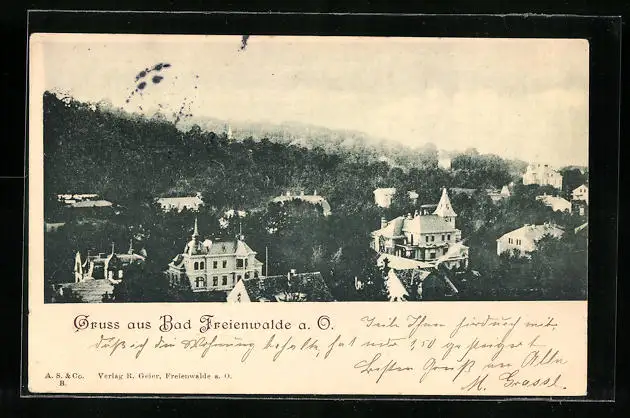 Gruss aus Bad Freienwalde a. O.
Teile Ihnen hierdurch mit,
daß ich die Wohnung behalte, hat nur 1,50 gesteigert
Besten Gruß an Alle
M. Grassl.
A. S. & Co. Verlag R. Geier, Freienwalde a. O.
B.